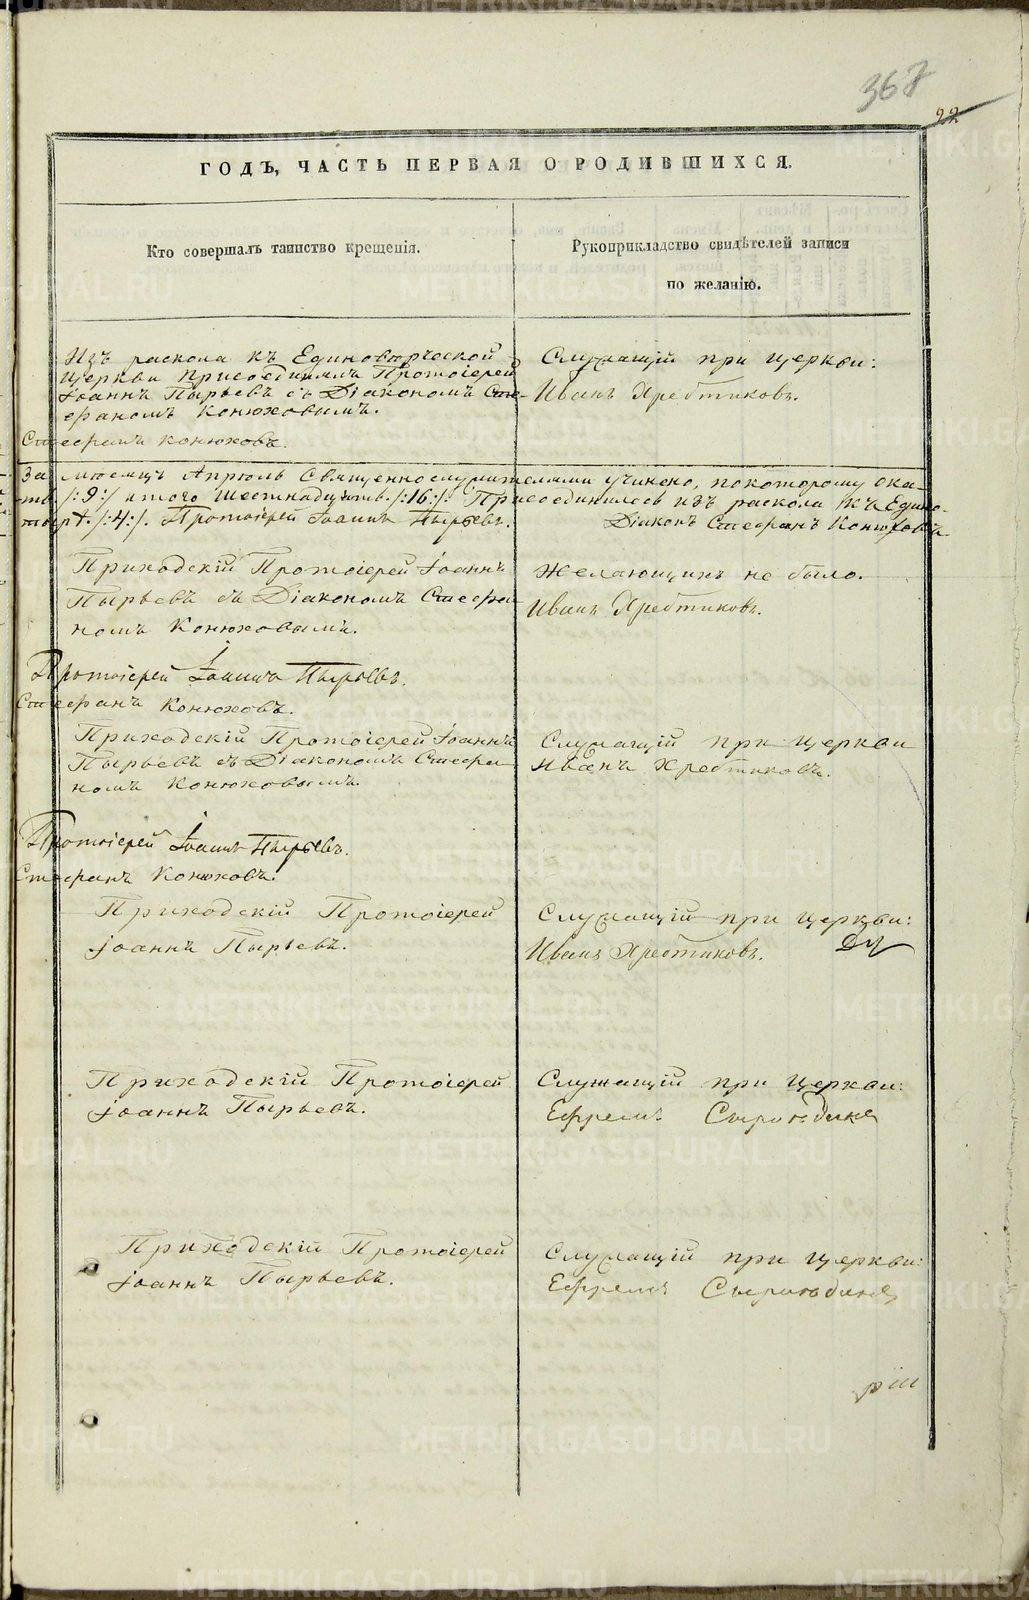 367
22
ГОДЪ, ЧАСТЬ ПЕРВАЯ О РОДИВШИХСЯ.
Кто совершалъ таинство крещенія.
Рукоприкладство свидѣтелей записи
по желанію.
Изъ раскола къ Единовѣрческой
церкви присоединилъ Протоіерей
Іоаннъ Пырьевъ съ Діакономъ Сте-
фаномъ Конюховымъ.
Стефанъ Конюховъ.
Служащій при церкви:
Иванъ Хребтиковъ.
За мѣсяцъ Апрѣль Священнослужителями учинено, по которому ока-
/:9:/ итого шестнадцать /:16:/. Присоединилось изъ раскола къ Едино-
/:4:/. Протоіерей Іоаннъ Пырьевъ. Діаконъ Стефанъ Конюховъ.
Приходскій Протоіерей Іоаннъ
Пырьевъ съ Діакономъ Стефа-
номъ Конюховымъ.
Желающихъ не было.
Иванъ Хребтиковъ.
Протоіерей Іоаннъ Пырьевъ.
Стефанъ Конюховъ.
Приходскій Протоіерей Іоаннъ
Пырьевъ съ Діакономъ Стефа-
номъ Конюховымъ.
Служащій при церкви
Иванъ Хребтиковъ.
Протоіерей Іоаннъ Пырьевъ.
Стефанъ Конюховъ.
Приходскій Протоіерей
Іоаннъ Пырьевъ.
Служащій при церкви:
Иванъ Хребтиковъ.
Приходскій Протоіерей
Іоаннъ Пырьевъ.
Служащій при церкви:
Ефремъ
Приходскій Протоіерей
Іоаннъ Пырьевъ.
Служащій при церкви:
Ефремъ
METRIKI.GASO-URAL.RU